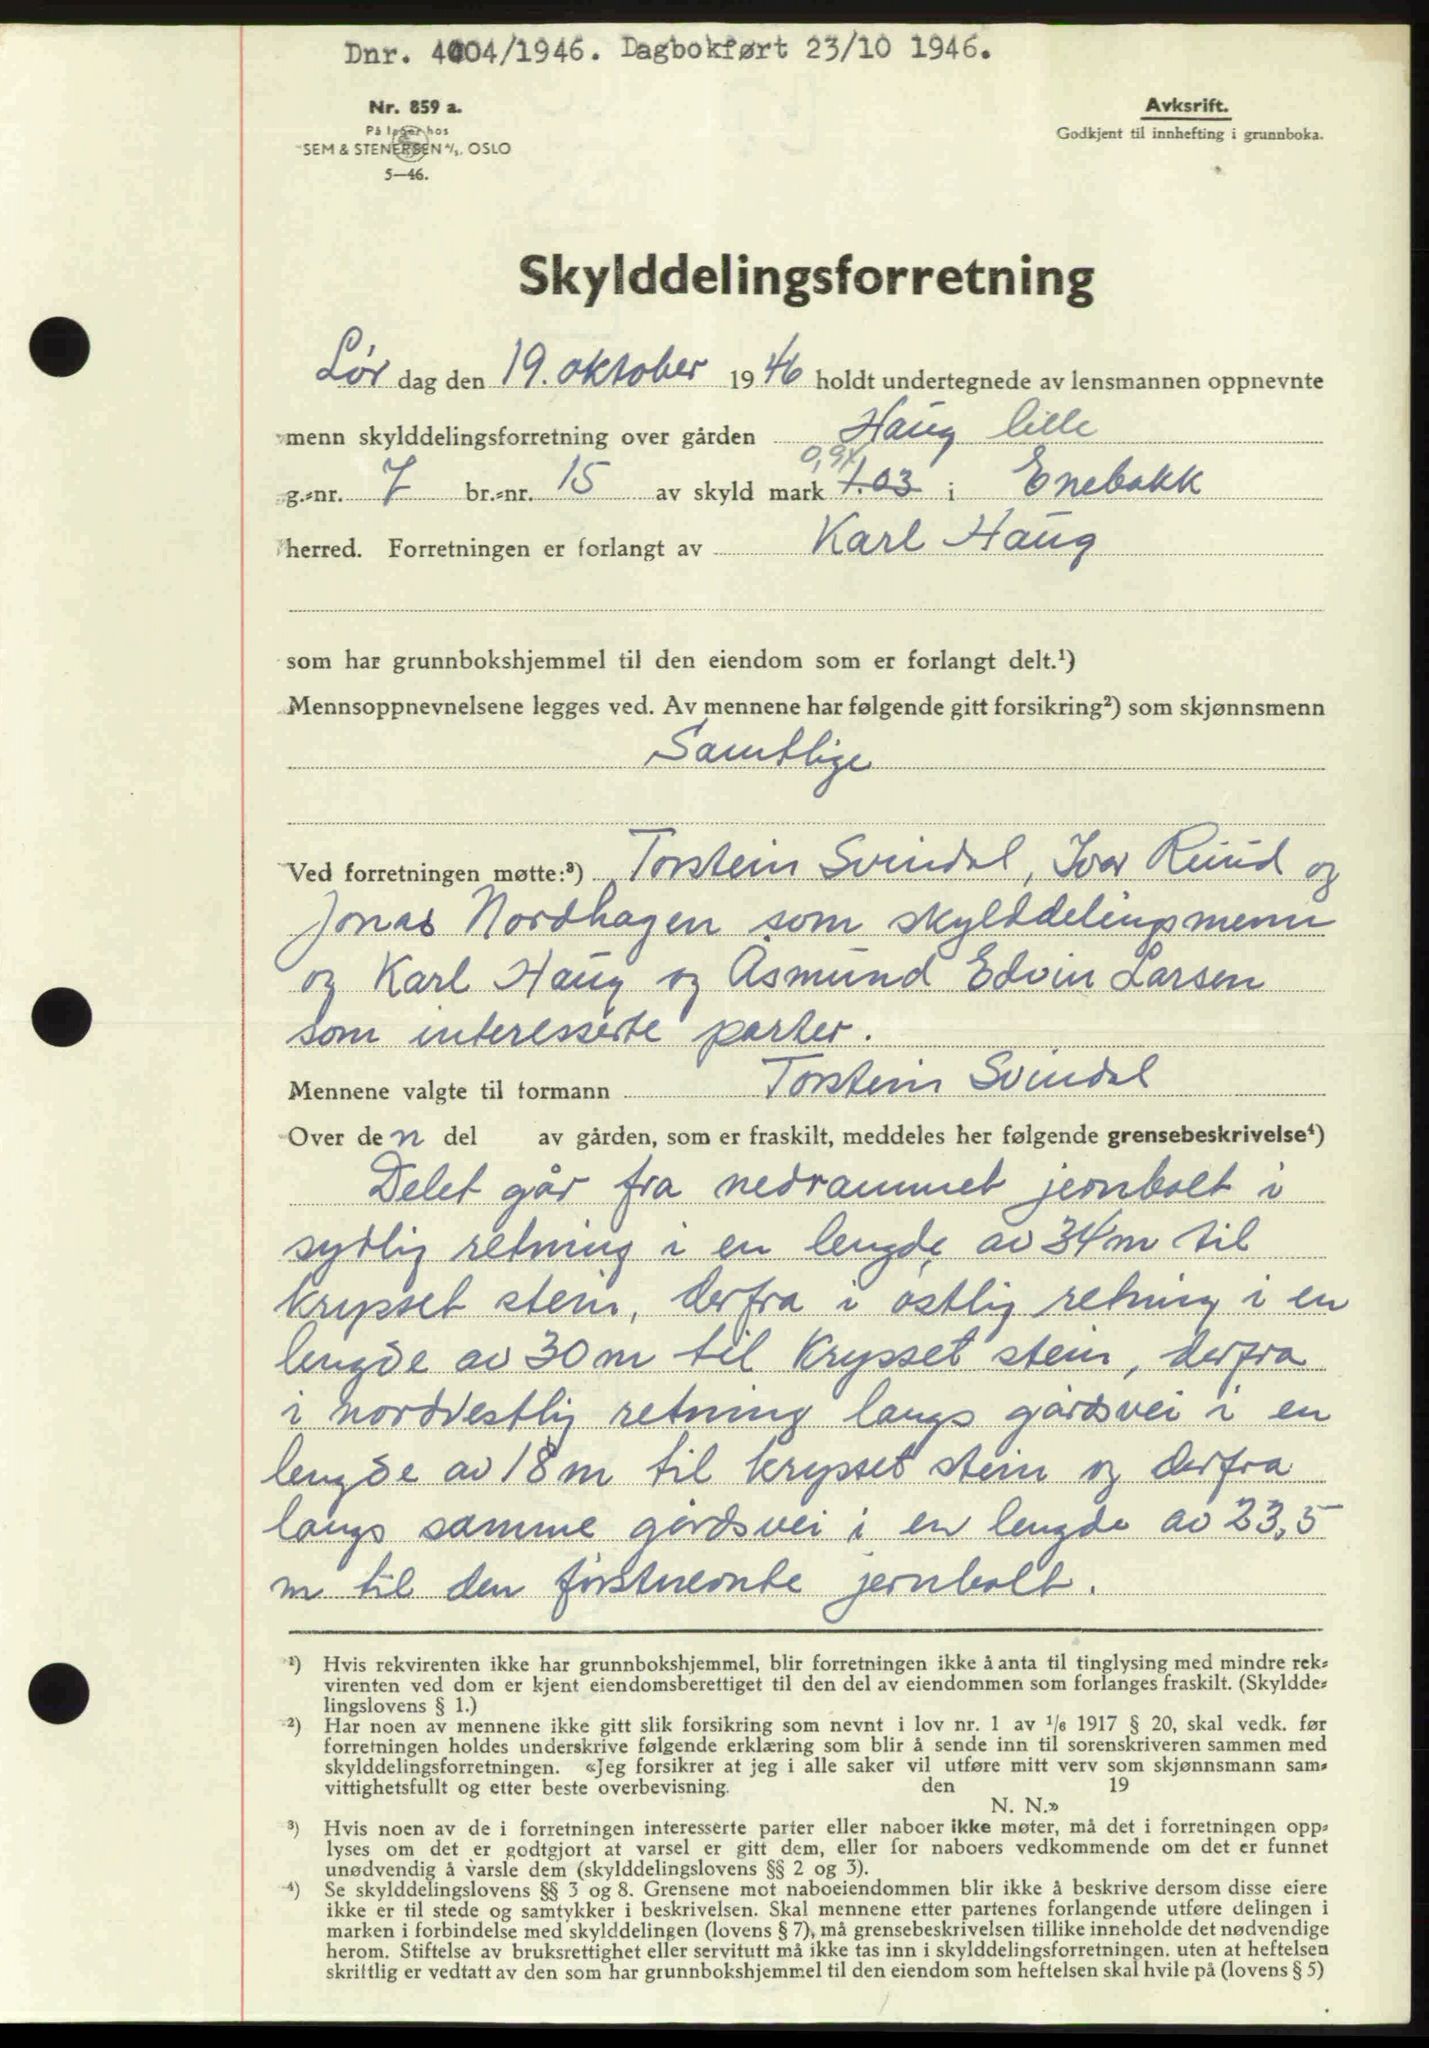 Dnr. 4004/1946. Dagbokført 23/10 1946.
Nr. 859 a.
På lager hos
SEM & STENERSEN A/S. OSLO
5—46.
Avksrift.
Godkjent til innhefting i grunnboka.
Skylddelingsforretning
Lør dag den 19. oktober 1946 holdt undertegnede av lensmannen oppnevnte
menn skylddelingsforretning over gården Haug lille
0,94
g.-nr. 7 br.-nr. 15 av skyld mark 1.03 i Enebakk
herred. Forretningen er forlangt av Karl Haug
som har grunnbokshjemmel til den eiendom som er forlangt delt.¹)
Mennsoppnevnelsene legges ved. Av mennene har følgende gitt forsikring²) som skjønnsmenn
Samtlige
Ved forretningen møtte:³) Torstein Svindal, Ivar Ruud og
Jonas Nordhagen som skylddelingsmenn
og Karl Haug og Åsmund Edvin Larsen
som interesserte parter.
Mennene valgte til formann Torstein Svindal
Over den del av gården, som er fraskilt, meddeles her følgende grensebeskrivelse⁴)
Delet går fra nedrammet jernbolt i
sydlig retning i en lengde av 34 m til
krysset stein, derfra i østlig retning i en
lengde av 30 m til krysset stein, derfra
i nordvestlig retning langs gårdsvei i en
lengde av 18 m til krysset stein og derfra
langs samme gårdsvei i en lengde av 23,5
m til den førstnevnte jernbolt.
¹) Hvis rekvirenten ikke har grunnbokshjemmel, blir forretningen ikke å anta til tinglysing med mindre rek-
virenten ved dom er kjent eiendomsberettiget til den del av eiendommen som forlanges fraskilt. (Skyldde-
lingslovens § 1.)
²) Har noen av mennene ikke gitt slik forsikring som nevnt i lov nr. 1 av 1/6 1917 § 20, skal vedk. før
forretningen holdes underskrive følgende erklæring som blir å sende inn til sorenskriveren sammen med
skylddelingsforretningen. «Jeg forsikrer at jeg i alle saker vil utføre mitt verv som skjønnsmann sam-
vittighetsfullt og etter beste overbevisning. den 19
N. N.»
³) Hvis noen av de i forretningen interesserte parter eller naboer ikke møter, må det i forretningen opp-
lyses om det er godtgjort at varsel er gitt dem, eller for naboers vedkommende om det er funnet
unødvendig å varsle dem (skylddelingslovens §§ 2 og 3).
⁴) Se skylddelingslovens §§ 3 og 8. Grensene mot naboeiendommen blir ikke å beskrive dersom disse eiere
ikke er til stede og samtykker i beskrivelsen. Skal mennene etter partenes forlangende utføre delingen i
marken i forbindelse med skylddelingen (lovens § 7), må grensebeskrivelsen tillike inneholde det nødvendige
herom. Stiftelse av bruksrettighet eller servitutt må ikke tas inn i skylddelingsforretningen, uten at heftelsen
skriftlig er vedtatt av den som har grunnbokshjemmel til den eiendom som heftelsen skal hvile på (lovens § 5)